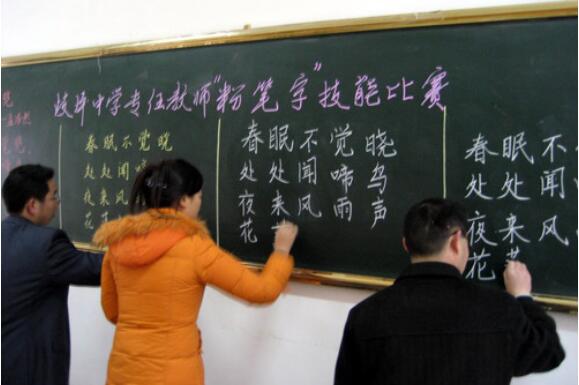 岐坪中学专任教师"粉笔字"技能比赛
晓
春眠不觉晓
处处闻啼
夜来风
花
春眠不觉晓
处处闻啼鸟
夜来风雨声
花
春眠不
处处闻
夜来风
花